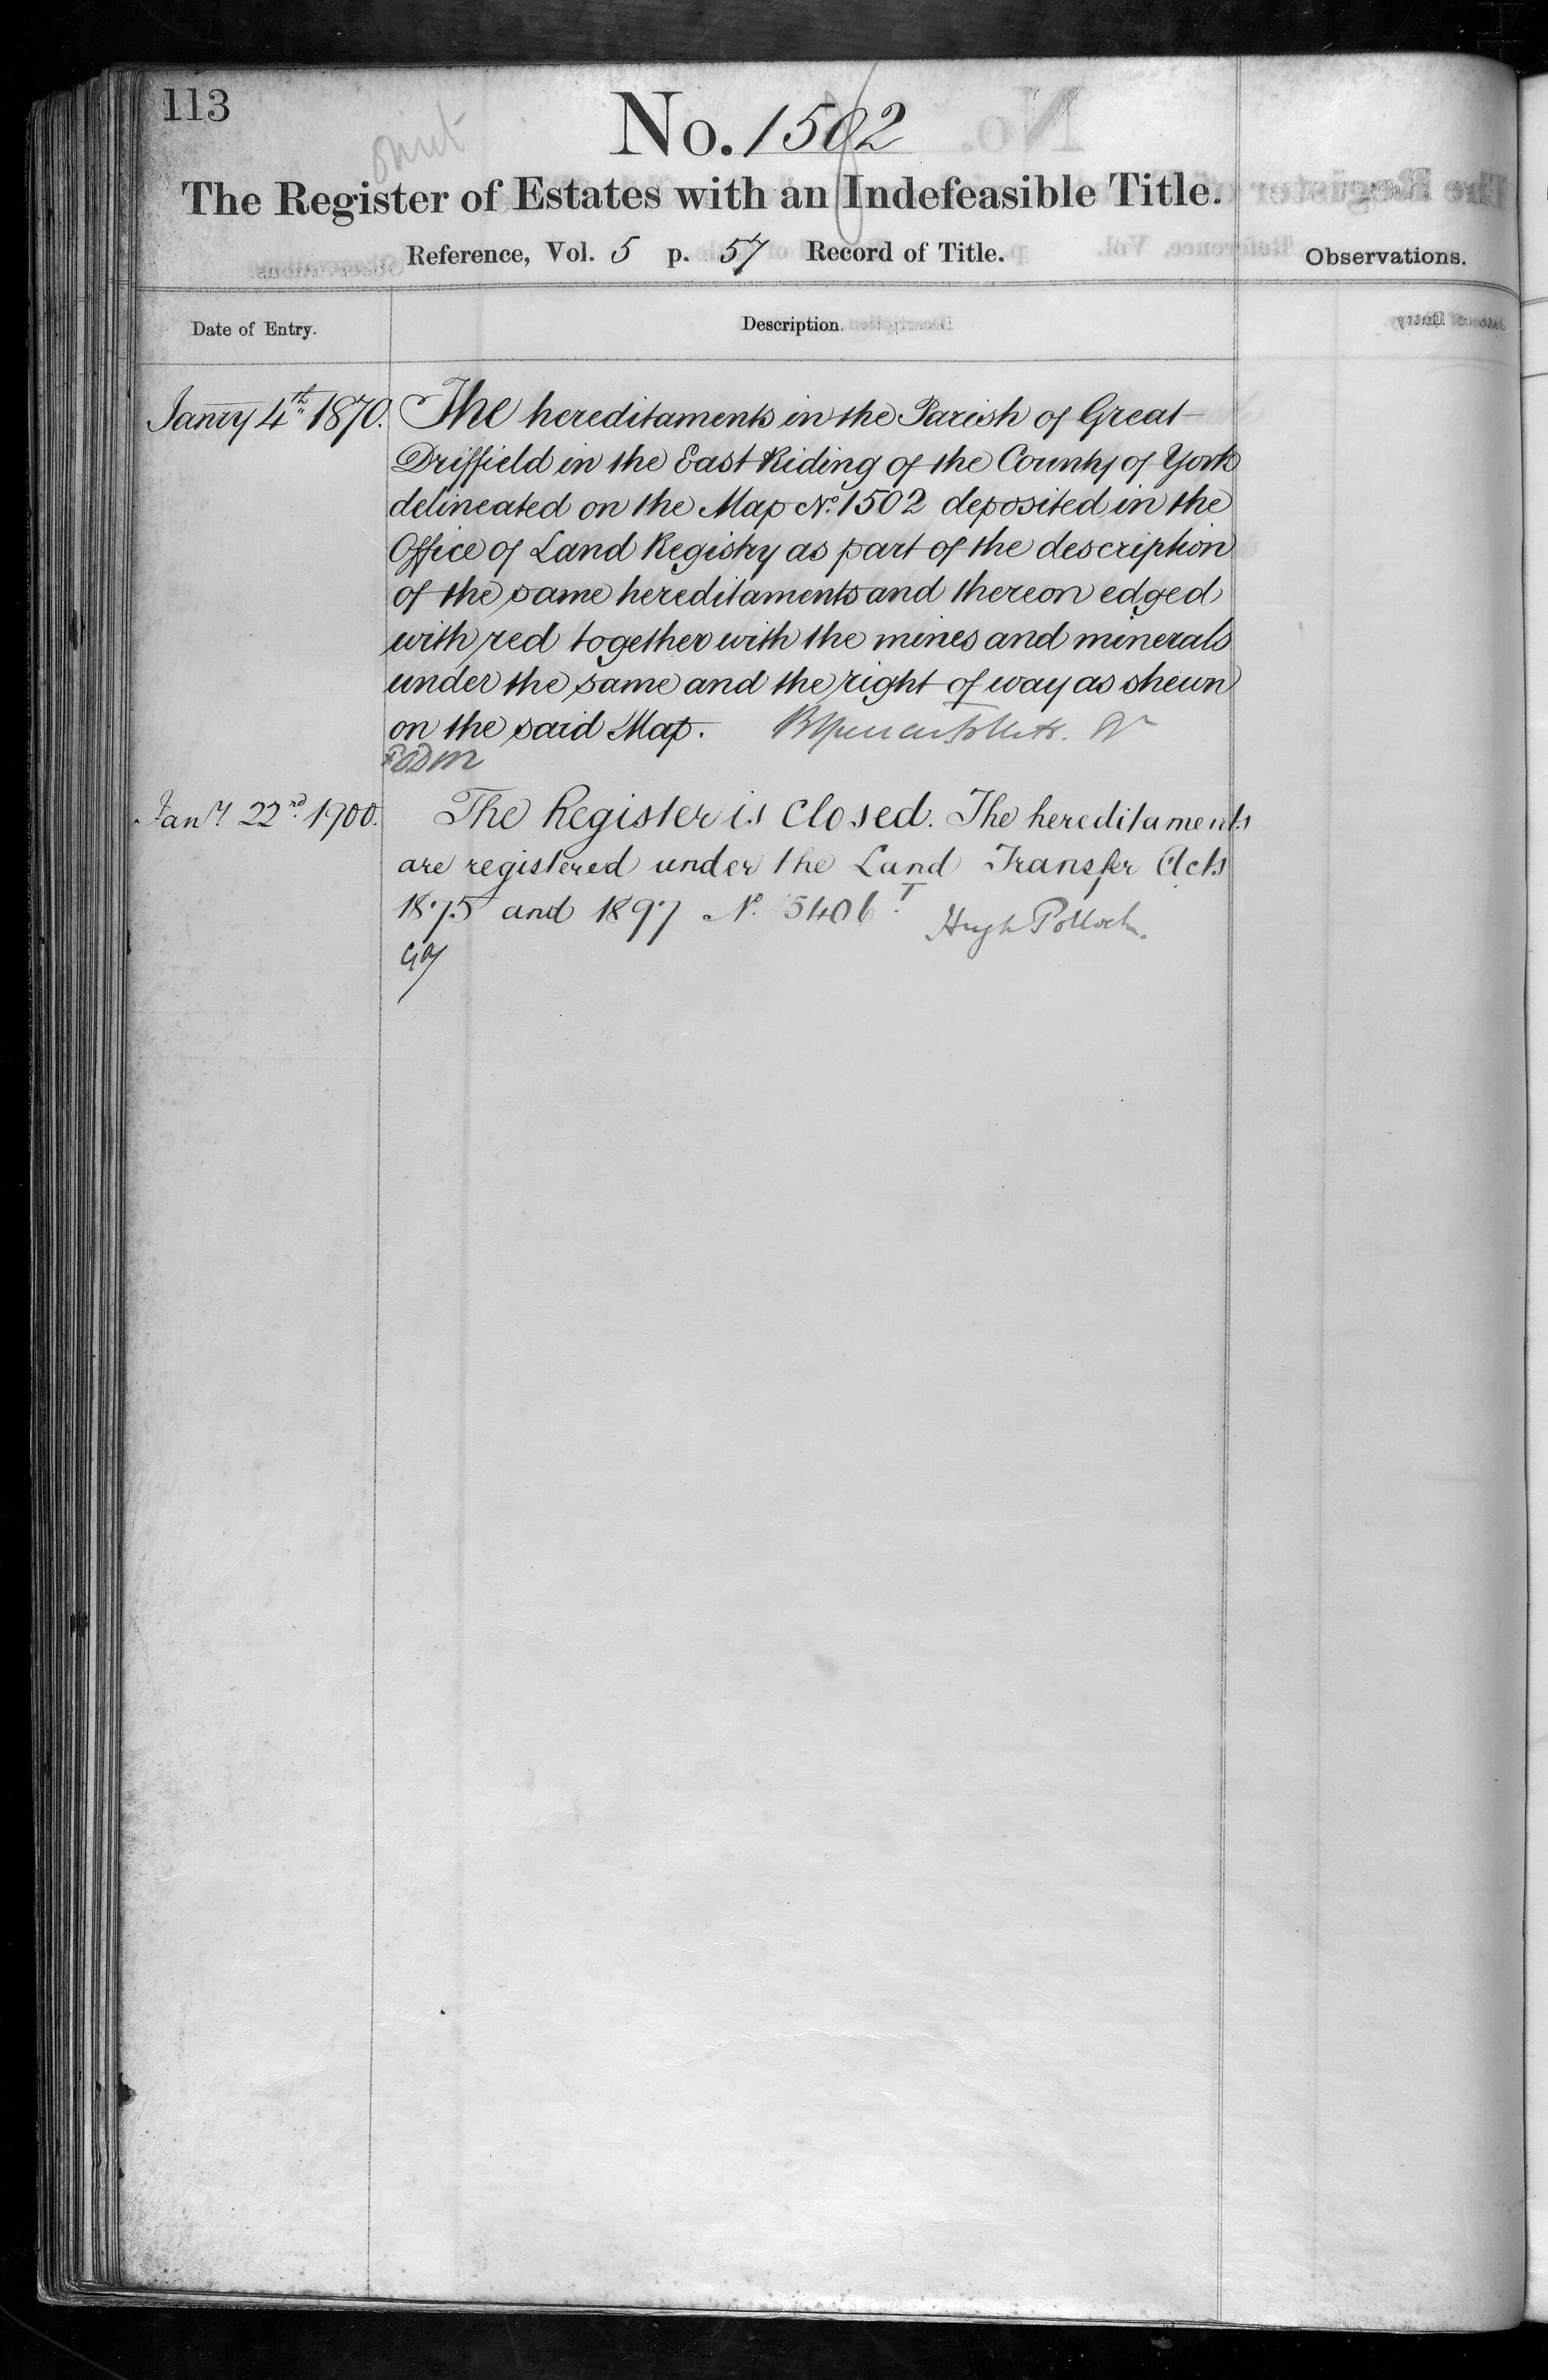 113
No. 1502
omit
The Register of Estates with an Indefeasible Title.
Reference, Vol. 5 p. 57 Record of Title.
Observations.
Date of Entry.
Description.
Janry 4th 1870. The hereditaments in the Parish of Great
Driffield in the East Riding of the County of York
delineated on the Map No. 1502 deposited in the
Office of Land Registry as part of the description
of the same hereditaments and thereon edged
with red together with the mines and minerals
under the same and the right of way as shewn
on the said Map.
Jany. 22nd 1900. The Register is Closed. The hereditaments
are registered under the Land Transfer Acts
1875 and 1897 No. 5406
Hugh Pollock.